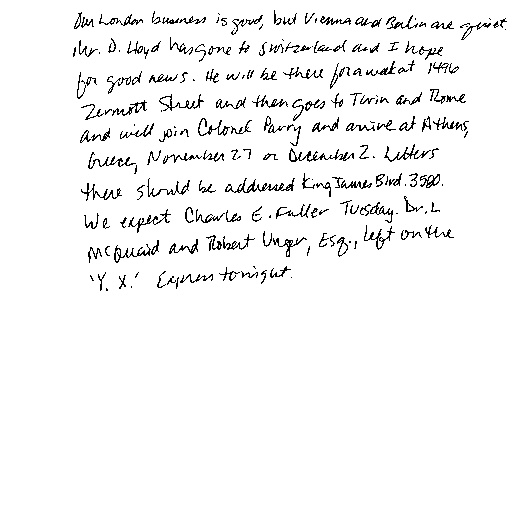 Our London business is good, but Vienna and Berlin are quiet.
Mr. D. Lloyd has gone to Switzerland and I hope
for good news. He will be there for a week at 1496
Zermott Street and then goes to Turin and Rome
and will join Colonel Parry and arrive at Athens,
Greece, November 27 or December 2. Letters
there should be addressed King James Blvd. 3580.
We expect Charles E. Fuller Tuesday. Dr. L
McQuaid and Robert Unger, Esq., left on the
'Y. X.' Express tonight.